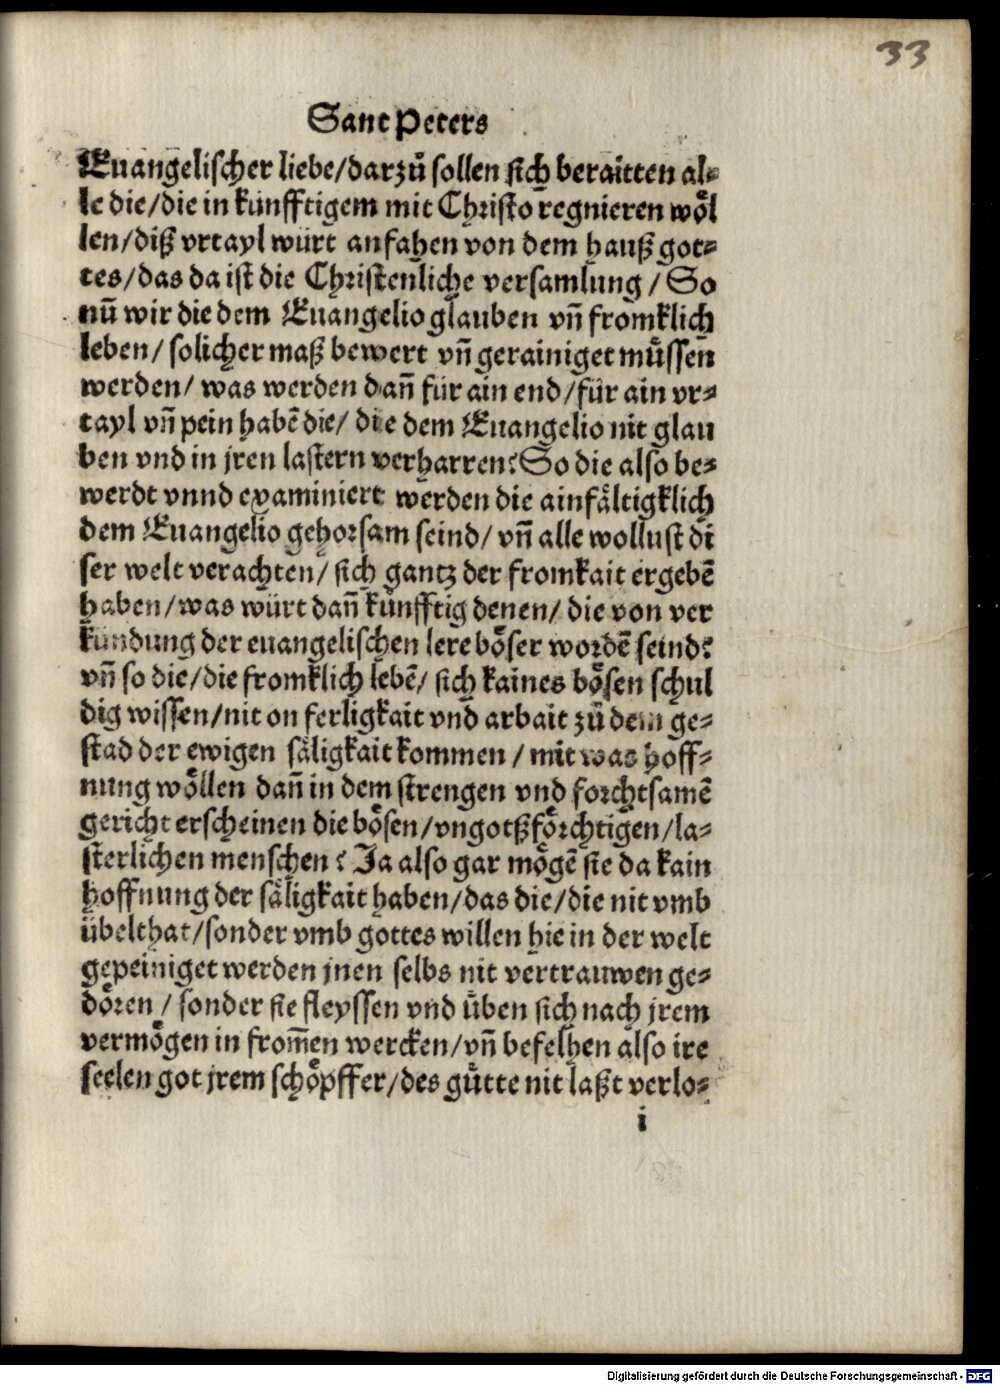 33
Sanct Peters
Euangelischer liebe/darzů sollen sich beraitten al-
le die/die in künfftigem mit Christo regnieren wöl
len/diß vrtayl würt anfahen von dem hauß got-
tes/das da ist die Christenliche versamlung/So
nũ wir die dem Euangelio glauben vñ fromklich
leben/solicher maß bewert vñ gerainiget müssen
werden/was werden dañ für ain end/für ain vr-
tayl vñ pein habẽ die/die dem Euangelio nit glau
ben vnd in jren lastern verharren? So die also be-
werdt vnnd examiniert werden die ainfältigklich
dem Euangelio gehorsam seind/vñ alle wollust di
ser welt verachten/sich gantz der fromkait ergebẽ
haben/was würt dañ künfftig denen/die von ver
kündung der euangelischen lere böser wordẽ seind?
vñ so die/die fromklich lebẽ/sich kaines bösen schul
dig wissen/nit on ferligkait vnd arbait zů dem ge-
stad der ewigen säligkait kommen/mit was hoff-
nung wöllen dañ in dem strengen vnd forchtsamẽ
gericht erscheinen die bösen/vngotßförchtigen/la-
sterlichen menschen? Ja also gar mögẽ sie da kain
hoffnung der säligkait haben/das die/die nit vmb
übelthat/sonder vmb gottes willen hie in der welt
gepeiniget werden jnen selbs nit vertrauwen ge-
dören/sonder sie fleyssen vnd üben sich nach jrem
vermögen in from̃en wercken/vñ befelhen also ire
seelen got jrem schöpffer/des gütte nit laßt verlo-
i
Digitalisierung gefördert durch die Deutsche Forschungsgemeinschaft - DFG